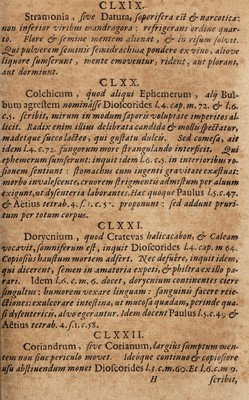 CLXIX.
Stramonia, sive Datura, soporifera est & narcotica:
non inferior viribus mandragora: refrigerans ordine quar-
to. Flore & semine mentem alienat, & in risum solvit.
Qui pulverem seminis semidrachma pondere ex vino, aliove
liquore sumserunt, mente emoventur, rident, aut plorant,
aut dormiunt.
CLXX.
Colchicum, quod aliqui Ephemerum, alij Bul-
bum agrestem nominâsse Dioscorides l.4. cap. m. 72. & l.6.
c.5. scribit, mirum in modum saporis voluptate imperitos al-
licit. Radix enim illius delibrata candida & mollis spectatur,
madetque succo lacteo, qui gustatu dulcet. Sed comesa, ait
idem l.4. c.72. fungorum more strangulando interficit. Qui
ephemerum sumserunt: inquit idem l.6. c.5. in interioribus ro-
sionem sentiunt: stomachus cum ingenti gravitate exæstuat:
morbo invalescente, cruorem strigmentis admistum per alvum
exigunt, ut dysenteria laborantes. Hæc quoque Paulus l.5. c.47.
& Aëtius tetrab. 4. s.1. c.5. proponunt: sed addunt pruri-
tum per totum corpus.
CLXXI.
Dorycnium, quod Cratevas halicacabon, & Caleam
vocavit, somniferum est, inquit Dioscorides l.4. cap. m 64.
Copiosiùs haustum mortem adfert. Nec defuêre, inquit idem,
qui dicerent, semen in amatoria expeti, & philtra ex illo pa-
rari. Idem l.6. c. m. 6. docet, dorycnium continenter ciere
singultus: humorem vexare linguam: sanguinis facere reie-
ctiones: exulcerare intestina, ut mucosa quadam, perinde qua-
si dysentericis, alvo egerantur. Idem docent Paulus l.5. c.49. &
Aëtius tetrab. 4. s.1. c.58.
CLXXII.
Coriandrum, sive Corianum, largiùs sumptum men-
tem non sine periculo movet. Ideoque continuo & copiosiore
usu abstinendum monet Dioscorides l.3. c. m. 60. Et l.6. c. m 9.
H scribit,